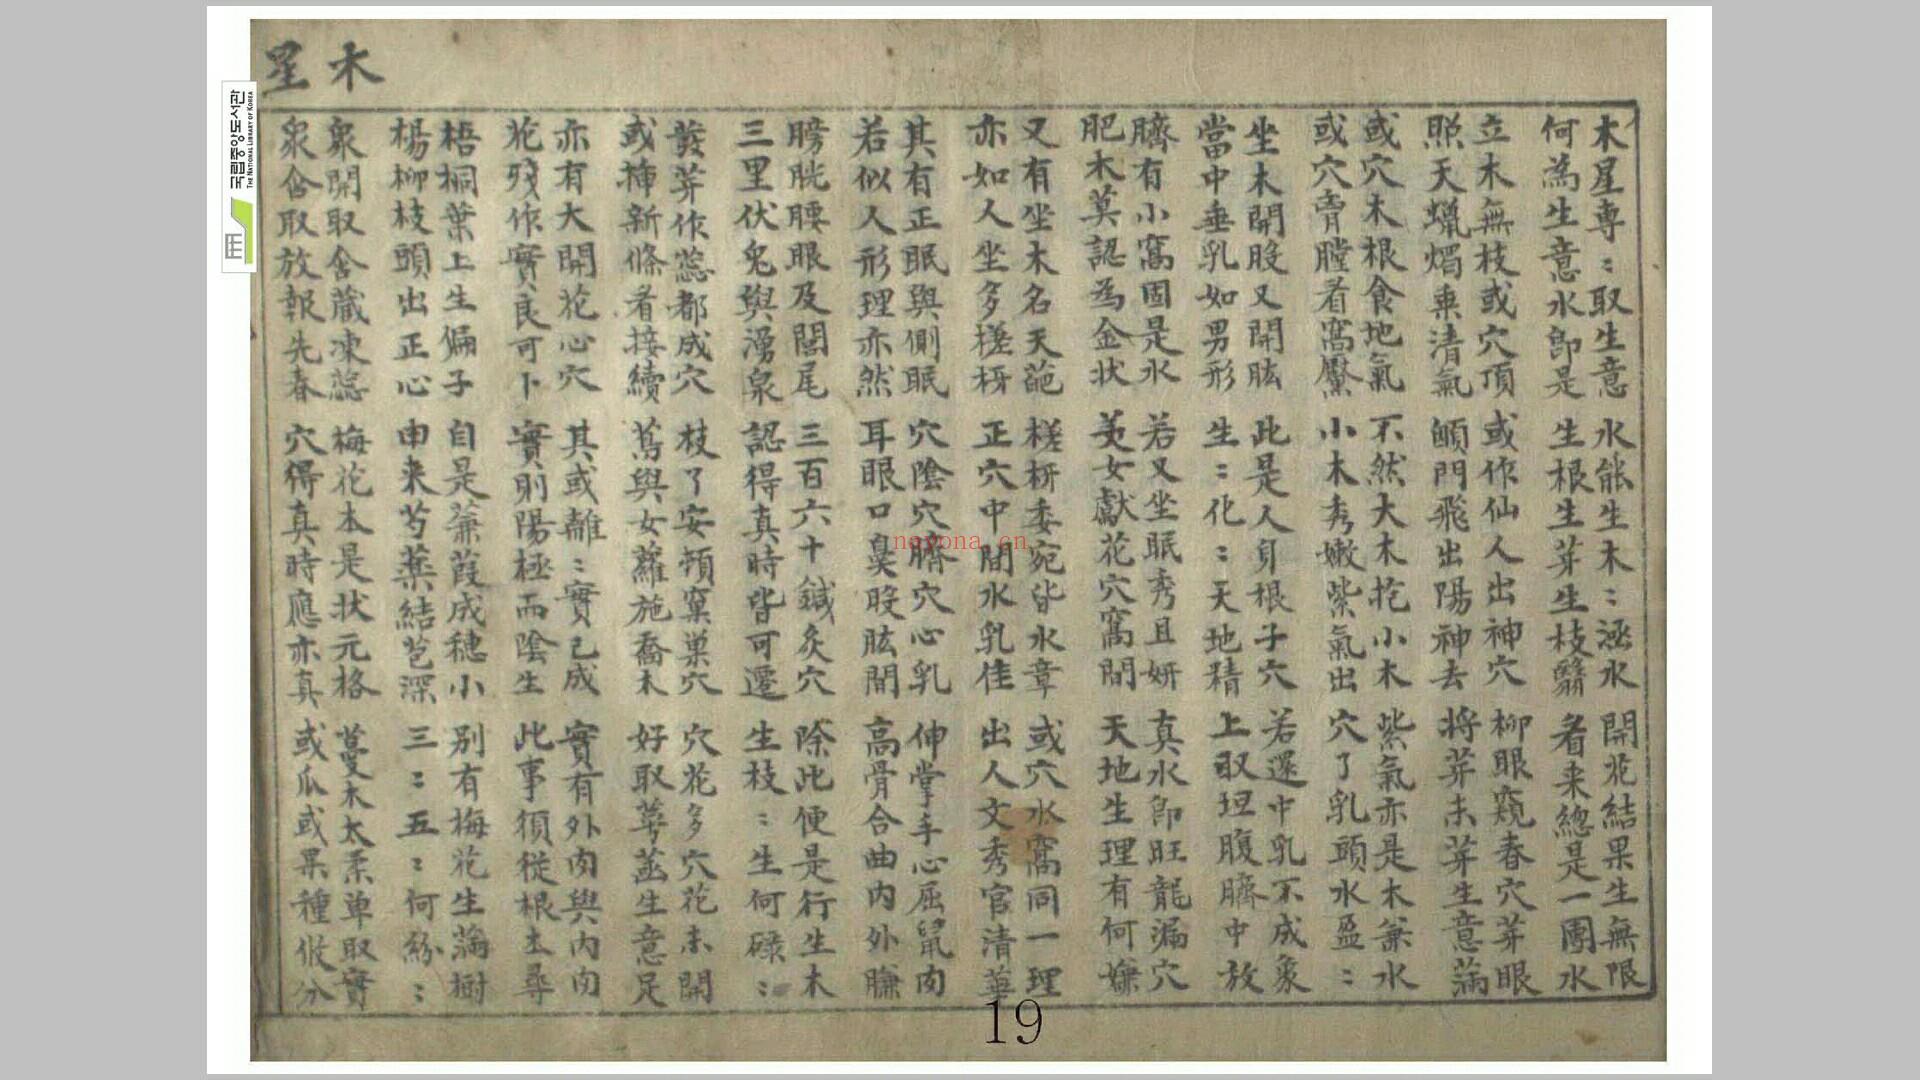 木星
木星専〻取生意 水能生木〻涵水 開花結果生無限
何為生意水即是 生根生芽生枝翳 看来總是一團水
立木無枝或穴頂 或作仙人出神穴 柳眼窺春穴芽眼
照天蠟燭秉清氣 顖門飛出陽神去 將芽未芽生意滿
或穴木根食地氣 不然大木挖小木 紫氣亦是木兼水
或穴膛看窩靨 小木秀嫩紫氣出 穴了乳頭水盈〻
坐木開股又開肱 此是人身根子穴 若還中乳不成象
當中垂乳如男形 生〻化〻天地精 上取坦腹臍中放
臍有小窩固是水 若又坐眠秀且妍 真水即旺龍漏穴
肥木莫認為金状 美女獻花穴窩間 天地生理有何嫌
又有坐木名天葩 槎枒委宛皆水章 或穴水窩同一理
亦如人坐多槎枒 正穴中間水乳佳 出人文秀官清華
其有正眠與側眠 穴陰穴臍穴心乳 伸掌手心屈鼠肉
若似人形理亦然 耳眼口鼻股肱間 高骨合曲内外臁
膀胱腰眼及閭尾 三百六十鍼灸穴 除此便是行生木
三里伏兔與湧泉 認得真時皆可遷 生枝〻生何碌〻
發芽作蕊都成穴 枝了安頓窠巢穴 穴花多穴花未開
或揷新條看接續 蔦與女蘿施喬木 好取萼生意足
亦有大開花心穴 其或離〻實已成 實有外肉與内肉
花殘作實良可卜 實則陽極而陰生 此事須從根上尋
梧桐葉上生偏子 自是蒹葭成穗小 別有梅花生滿樹
楊柳枝頭出正心 由来芍藥結苞深 三〻五〻何紛〻
衆開取含藏凍蕊 梅花本是状元格 蔓木太柔单取實
衆含取放報先春 穴得真時應亦真 或瓜或果種攸分
국립중앙도서관
THE NATIONAL LIBRARY OF KOREA
nayona.cn
19